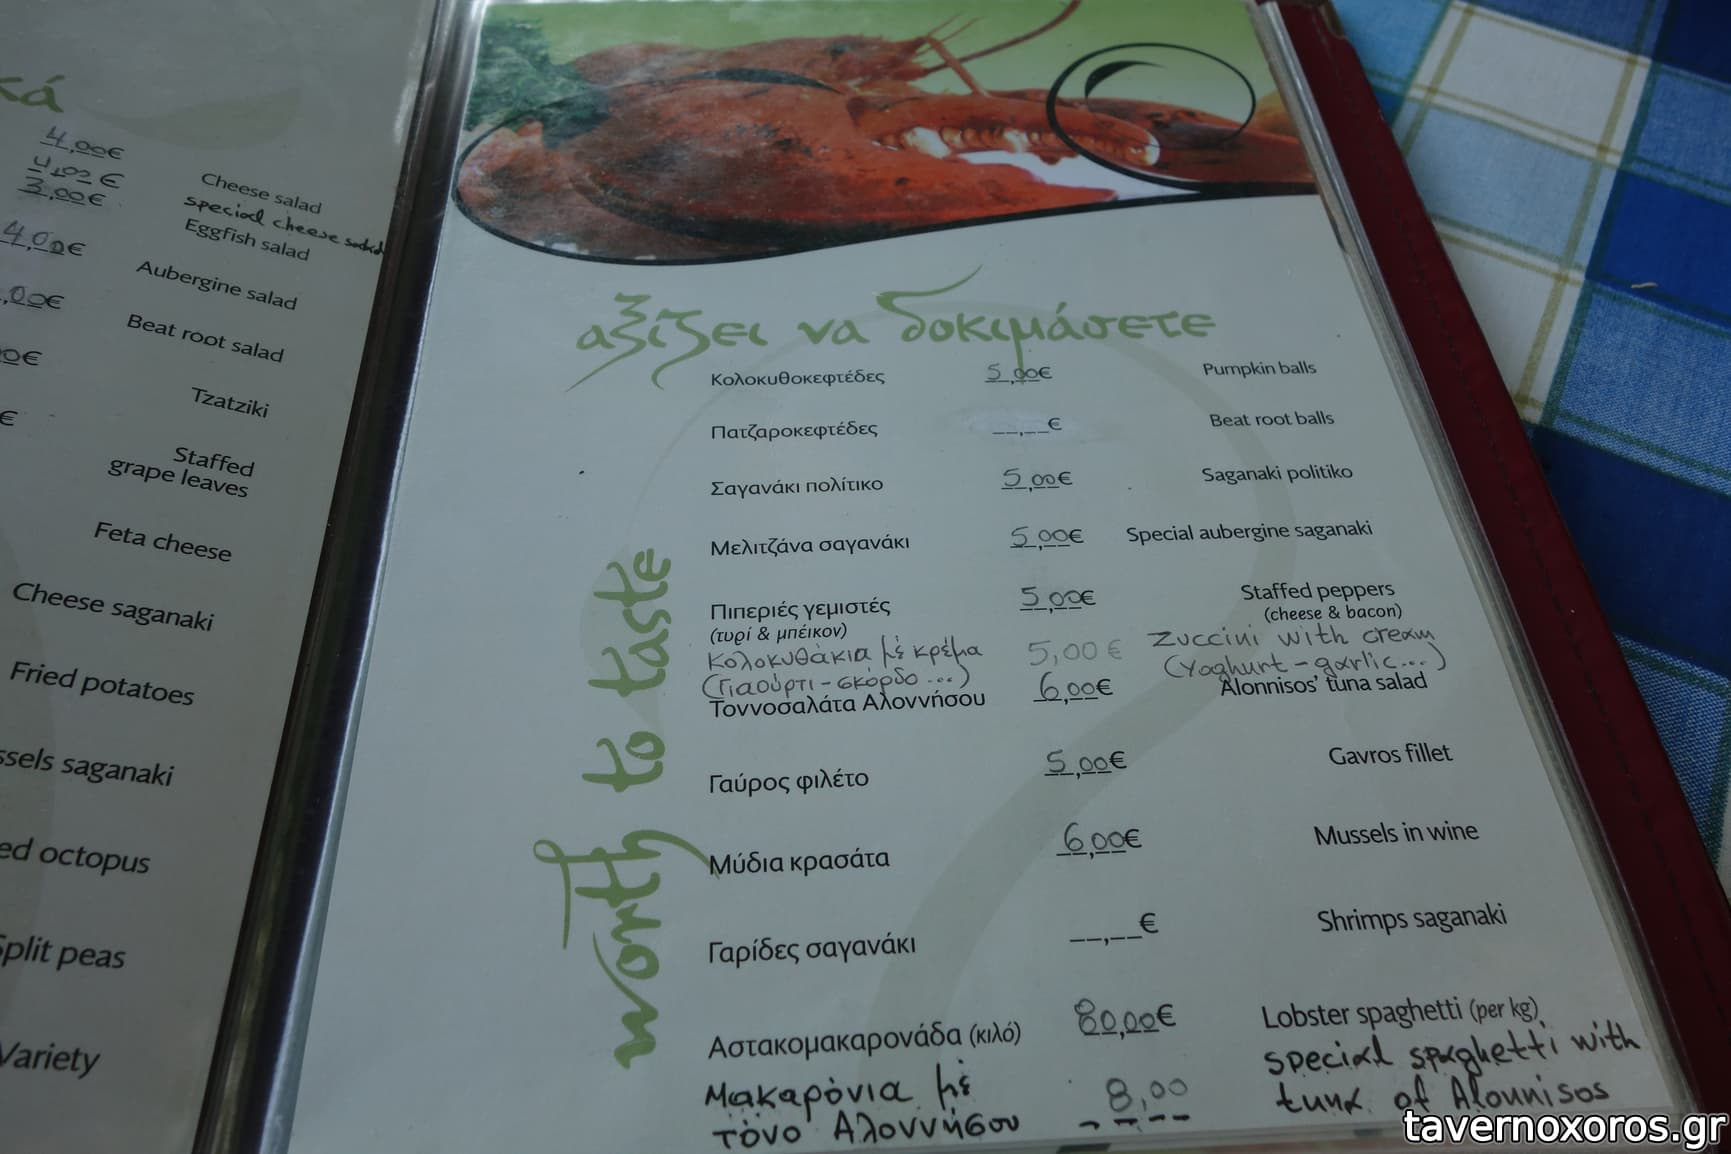 κά
4,00€
4,00€
Cheese salad
special cheese salad
3,00€
Eggfish salad
4,00€
Aubergine salad
,00€
Beat root salad
0€
Tzatziki
€
Staffed
grape leaves
Feta cheese
Cheese saganaki
Fried potatoes
ssels saganaki
ed octopus
Split peas
Variety
αξίζει να δοκιμάσετε
worth to taste
Κολοκυθοκεφτέδες 5,00€ Pumpkin balls
Πατζαροκεφτέδες __,__€ Beat root balls
Σαγανάκι πολίτικο 5,00€ Saganaki politiko
Μελιτζάνα σαγανάκι 5,00€ Special aubergine saganaki
Πιπεριές γεμιστές 5,00€ Staffed peppers
(τυρί & μπέικον) (cheese & bacon)
Κολοκυθάκια μέ κρέμα 5,00€ Zuccini with cream
(Γιαούρτι - σκόρδο ...) (Yoghurt - garlic...)
Τοννοσαλάτα Αλοννήσου 6,00€ Alonnisos' tuna salad
Γαύρος φιλέτο 5,00€ Gavros fillet
Μύδια κρασάτα 6,00€ Mussels in wine
Γαρίδες σαγανάκι __,__€ Shrimps saganaki
Αστακομακαρονάδα (κιλό) 80,00€ Lobster spaghetti (per kg)
Μακαρόνια μέ 8,00 special spaghetti with
τόνο Αλοννήσου tuna of Alonnisos
tavernoxoros.gr